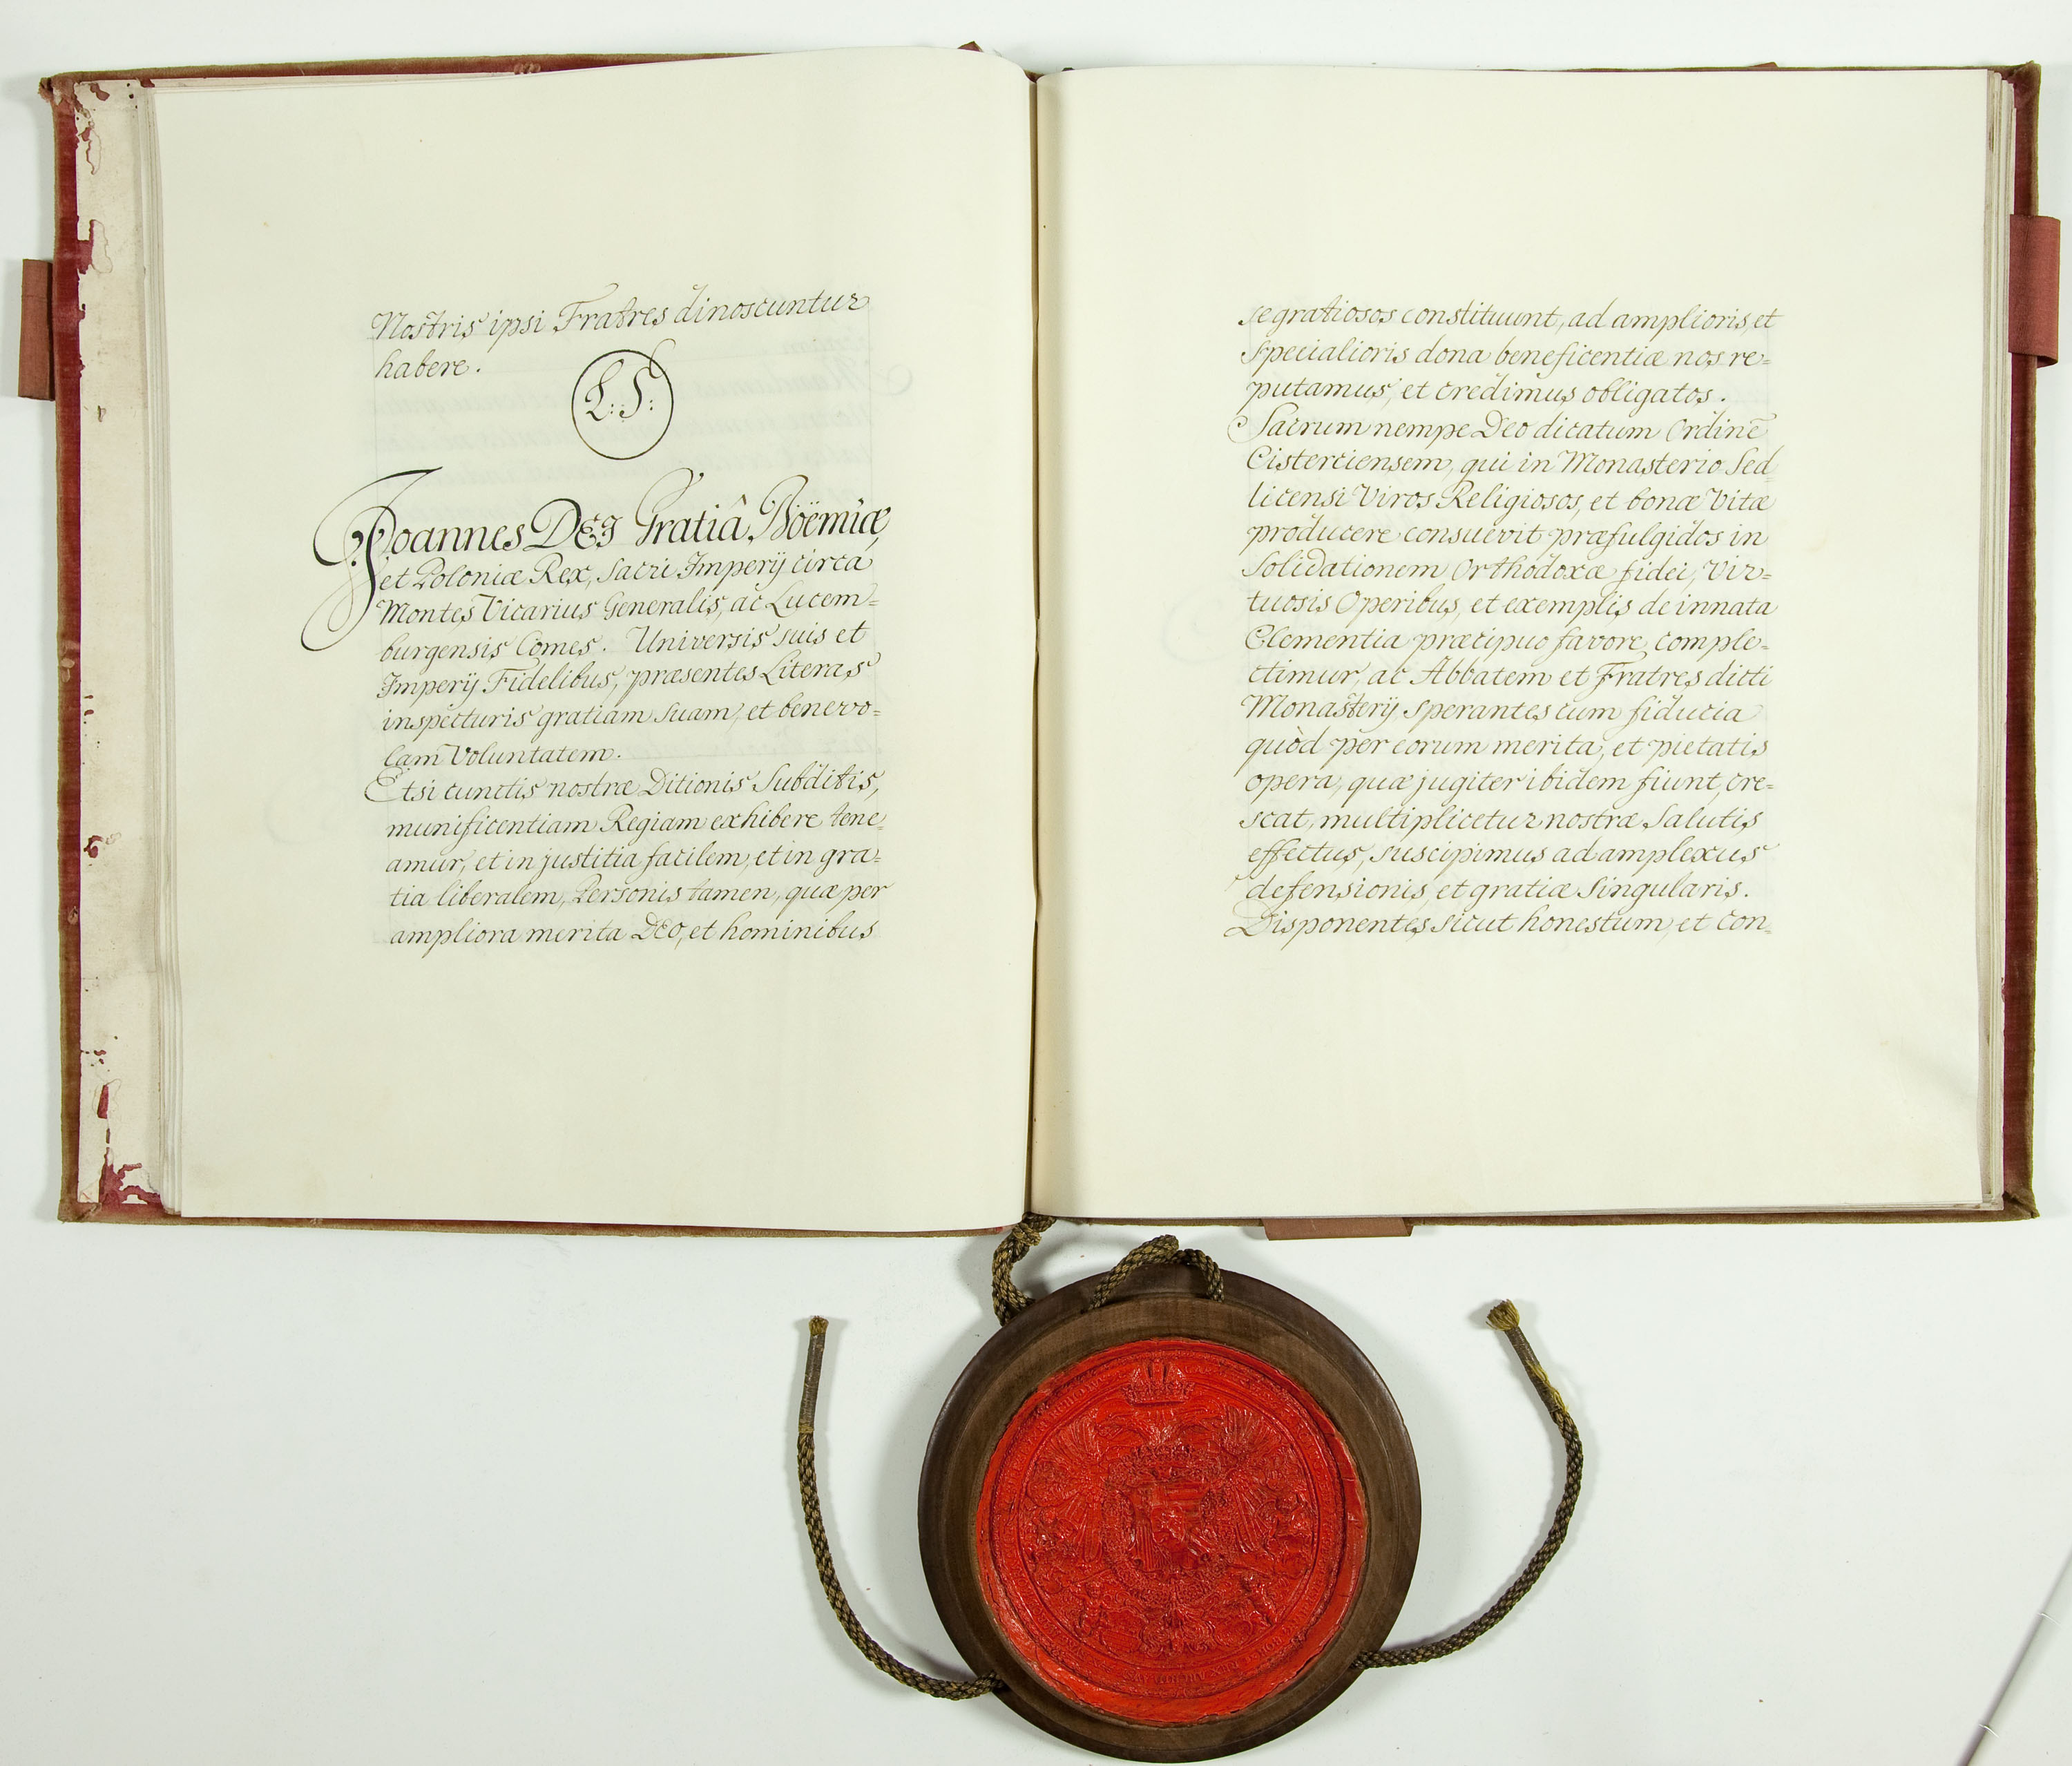 Nostris ipsi Fratres dinoscuntur
habere.
L: S:
Joannes DEI Gratiâ Böemiæ,
et Poloniæ Rex, Sacri Imperij circa
Montes Vicarius Generalis, ac Lucem=
burgensis Comes. Universis suis et
Imperij Fidelibus, præsentes Literas
inspecturis gratiam suam, et benevo=
lam Voluntatem.
Etsi cunctis nostræ Ditionis Subditis,
munificentiam Regiam exhibere tene=
amur, et in justitia facilem, et in gra=
tia liberalem, Personis tamen, quæ per
ampliora merita DEO, et hominibus
se gratiosos constituunt, ad amplioris, et
specialioris dona beneficentiæ nos re=
putamus, et credimus obligatos.
Sacrum nempe Deo dicatum Ordinē
Cisterciensem, qui in Monasterio Sed
licensi Viros Religiosos, et bonæ Vitæ
producere consuevit præfulgidos in
Solidationem Orthodoxæ fidei, Vir=
tuosis Operibus, et exemplis de innata
Clementia præcipuo favore comple=
ctimur, ac Abbatem et Fratres dicti
Monasterij sperantes cum fiducia
quòd per eorum merita, et pietatis
opera, quæ jugiter ibidem fiunt, cre=
scat, multiplicetur nostræ Salutis
effectus, suscipimus ad amplexus
defensionis, et gratiæ singularis.
Disponentes sicut honestum, et con=